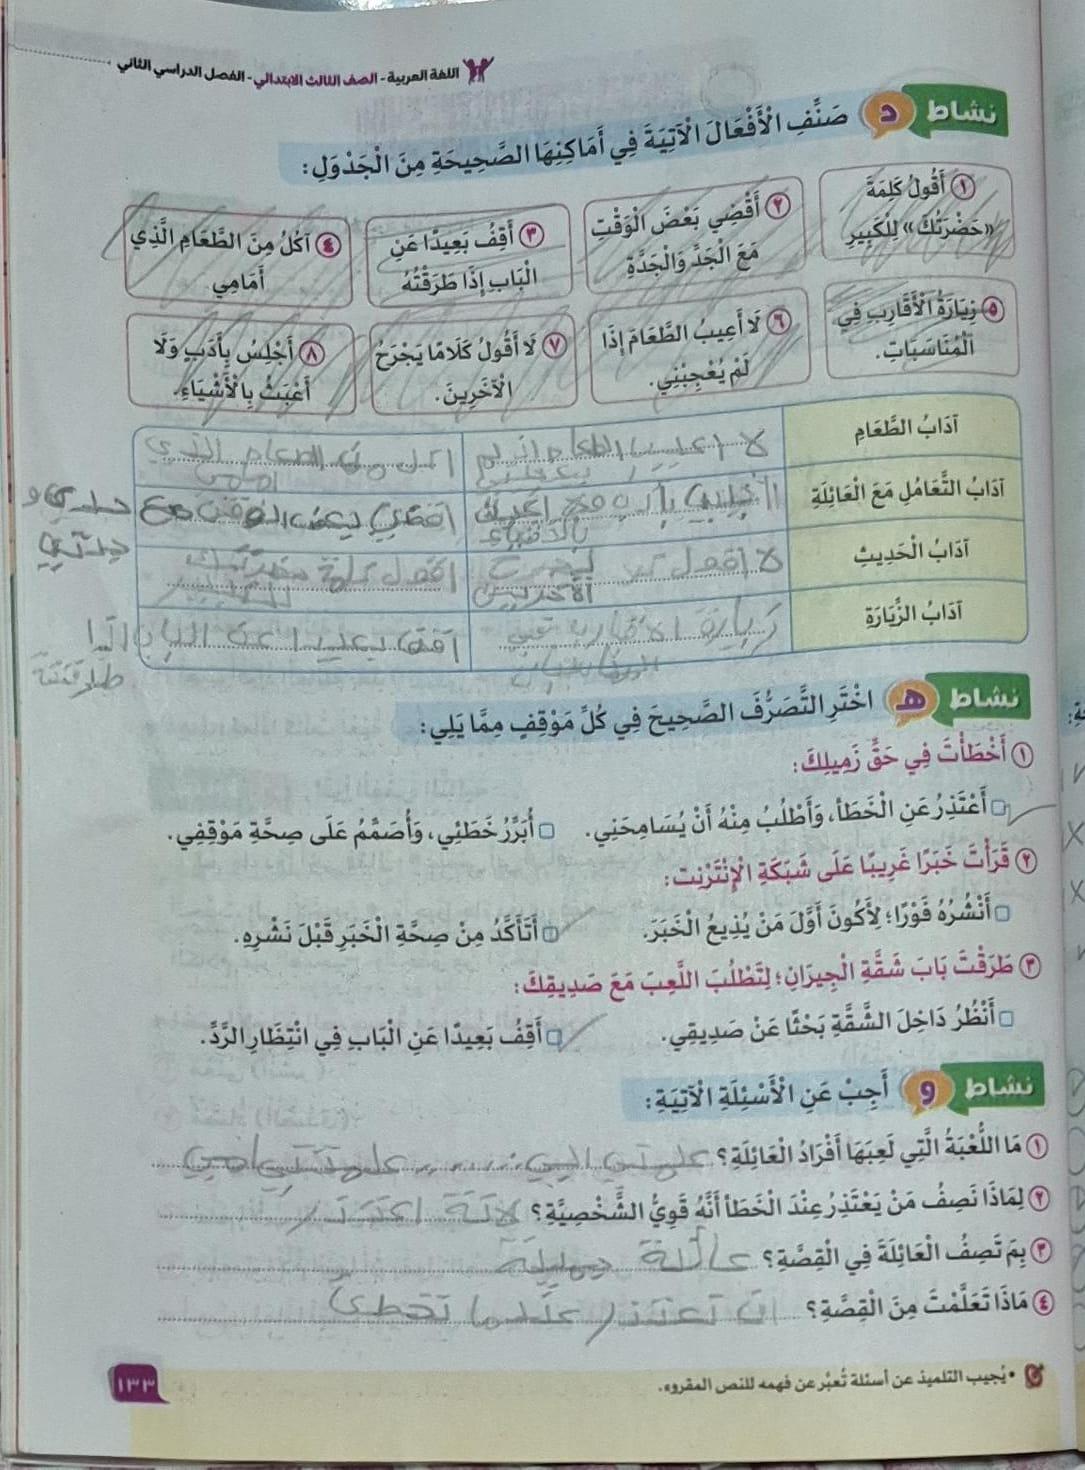 اللغة العربية - الصف الثالث الابتدائي - الفصل الدراسي الثاني
نشاط د صَنِّفِ الْأَفْعَالَ الْآتِيَةَ فِي أَمَاكِنِهَا الصَّحِيحَةِ مِنَ الْجَدْوَلِ:
١ أَقُولُ كَلِمَةَ «حَضْرَتُكَ» لِلْكَبِيرِ
٢ أَقْضِي بَعْضَ الْوَقْتِ مَعَ الْجَدِّ وَالْجَدَّةِ
٣ أَقِفُ بَعِيدًا عَنِ الْبَابِ إِذَا طَرَقْتُهُ
٤ آكُلُ مِنَ الطَّعَامِ الَّذِي أَمَامِي
٥ زِيَارَةُ الْأَقَارِبِ فِي الْمُنَاسَبَاتِ.
٦ لَا أَعِيبُ الطَّعَامَ إِذَا لَمْ يُعْجِبْنِي.
٧ لَا أَقُولُ كَلَامًا يَجْرَحُ الْآخَرِينَ.
٨ أَجْلِسُ بِأَدَبٍ وَلَا أَعْبَثُ بِالْأَشْيَاءِ.
آدَابُ الطَّعَامِ
لا اعيب الطعام
اكل من الطعام الذي امامي
آدَابُ التَّعَامُلِ مَعَ الْعَائِلَةِ
اقضي بعض الوقت مع جدي و جدتي
آدَابُ الْحَدِيثِ
لا اقول الآخرين
اقول كلمة حضرتك
آدَابُ الزِّيَارَةِ
زيارة الاقارب في
اقف بعيدا عن الباب اذا طرقته
نشاط هـ اخْتَرِ التَّصَرُّفَ الصَّحِيحَ فِي كُلِّ مَوْقِفٍ مِمَّا يَلِي:
١ أَخْطَأْتَ فِي حَقِّ زَمِيلِكَ:
أَعْتَذِرُ عَنِ الْخَطَأِ، وَأَطْلُبُ مِنْهُ أَنْ يُسَامِحَنِي. أُبَرِّرُ خَطَئِي، وَأُصَمِّمُ عَلَى صِحَّةِ مَوْقِفِي.
٢ قَرَأْتَ خَبَرًا غَرِيبًا عَلَى شَبَكَةِ الْإِنْتَرْنِت:
أَنْشُرُهُ فَوْرًا؛ لِأَكُونَ أَوَّلَ مَنْ يُذِيعُ الْخَبَرَ. أَتَأَكَّدُ مِنْ صِحَّةِ الْخَبَرِ قَبْلَ نَشْرِهِ.
٣ طَرَقْتَ بَابَ شَقَّةِ الْجِيرَانِ؛ لِتَطْلُبَ اللَّعِبَ مَعَ صَدِيقِكَ:
أَنْظُرُ دَاخِلَ الشَّقَّةِ بَحْثًا عَنْ صَدِيقِي. أَقِفُ بَعِيدًا عَنِ الْبَابِ فِي انْتِظَارِ الرَّدِّ.
نشاط و أَجِبْ عَنِ الْأَسْئِلَةِ الْآتِيَةِ:
١ مَا اللُّعْبَةُ الَّتِي لَعِبَهَا أَفْرَادُ الْعَائِلَةِ؟
٢ لِمَاذَا نَصِفُ مَنْ يَعْتَذِرُ عِنْدَ الْخَطَأِ أَنَّهُ قَوِيُّ الشَّخْصِيَّةِ؟ لانه اعتذر
٣ بِمَ تَصِفُ الْعَائِلَةَ فِي الْقِصَّةِ؟ عائلة جميلة
٤ مَاذَا تَعَلَّمْتَ مِنَ الْقِصَّةِ؟ ان تعتذر عندما تخطئ
• يُجيب التلميذ عن أسئلة تُعبِّر عن فهمه للنص المقروء.
١٣٣